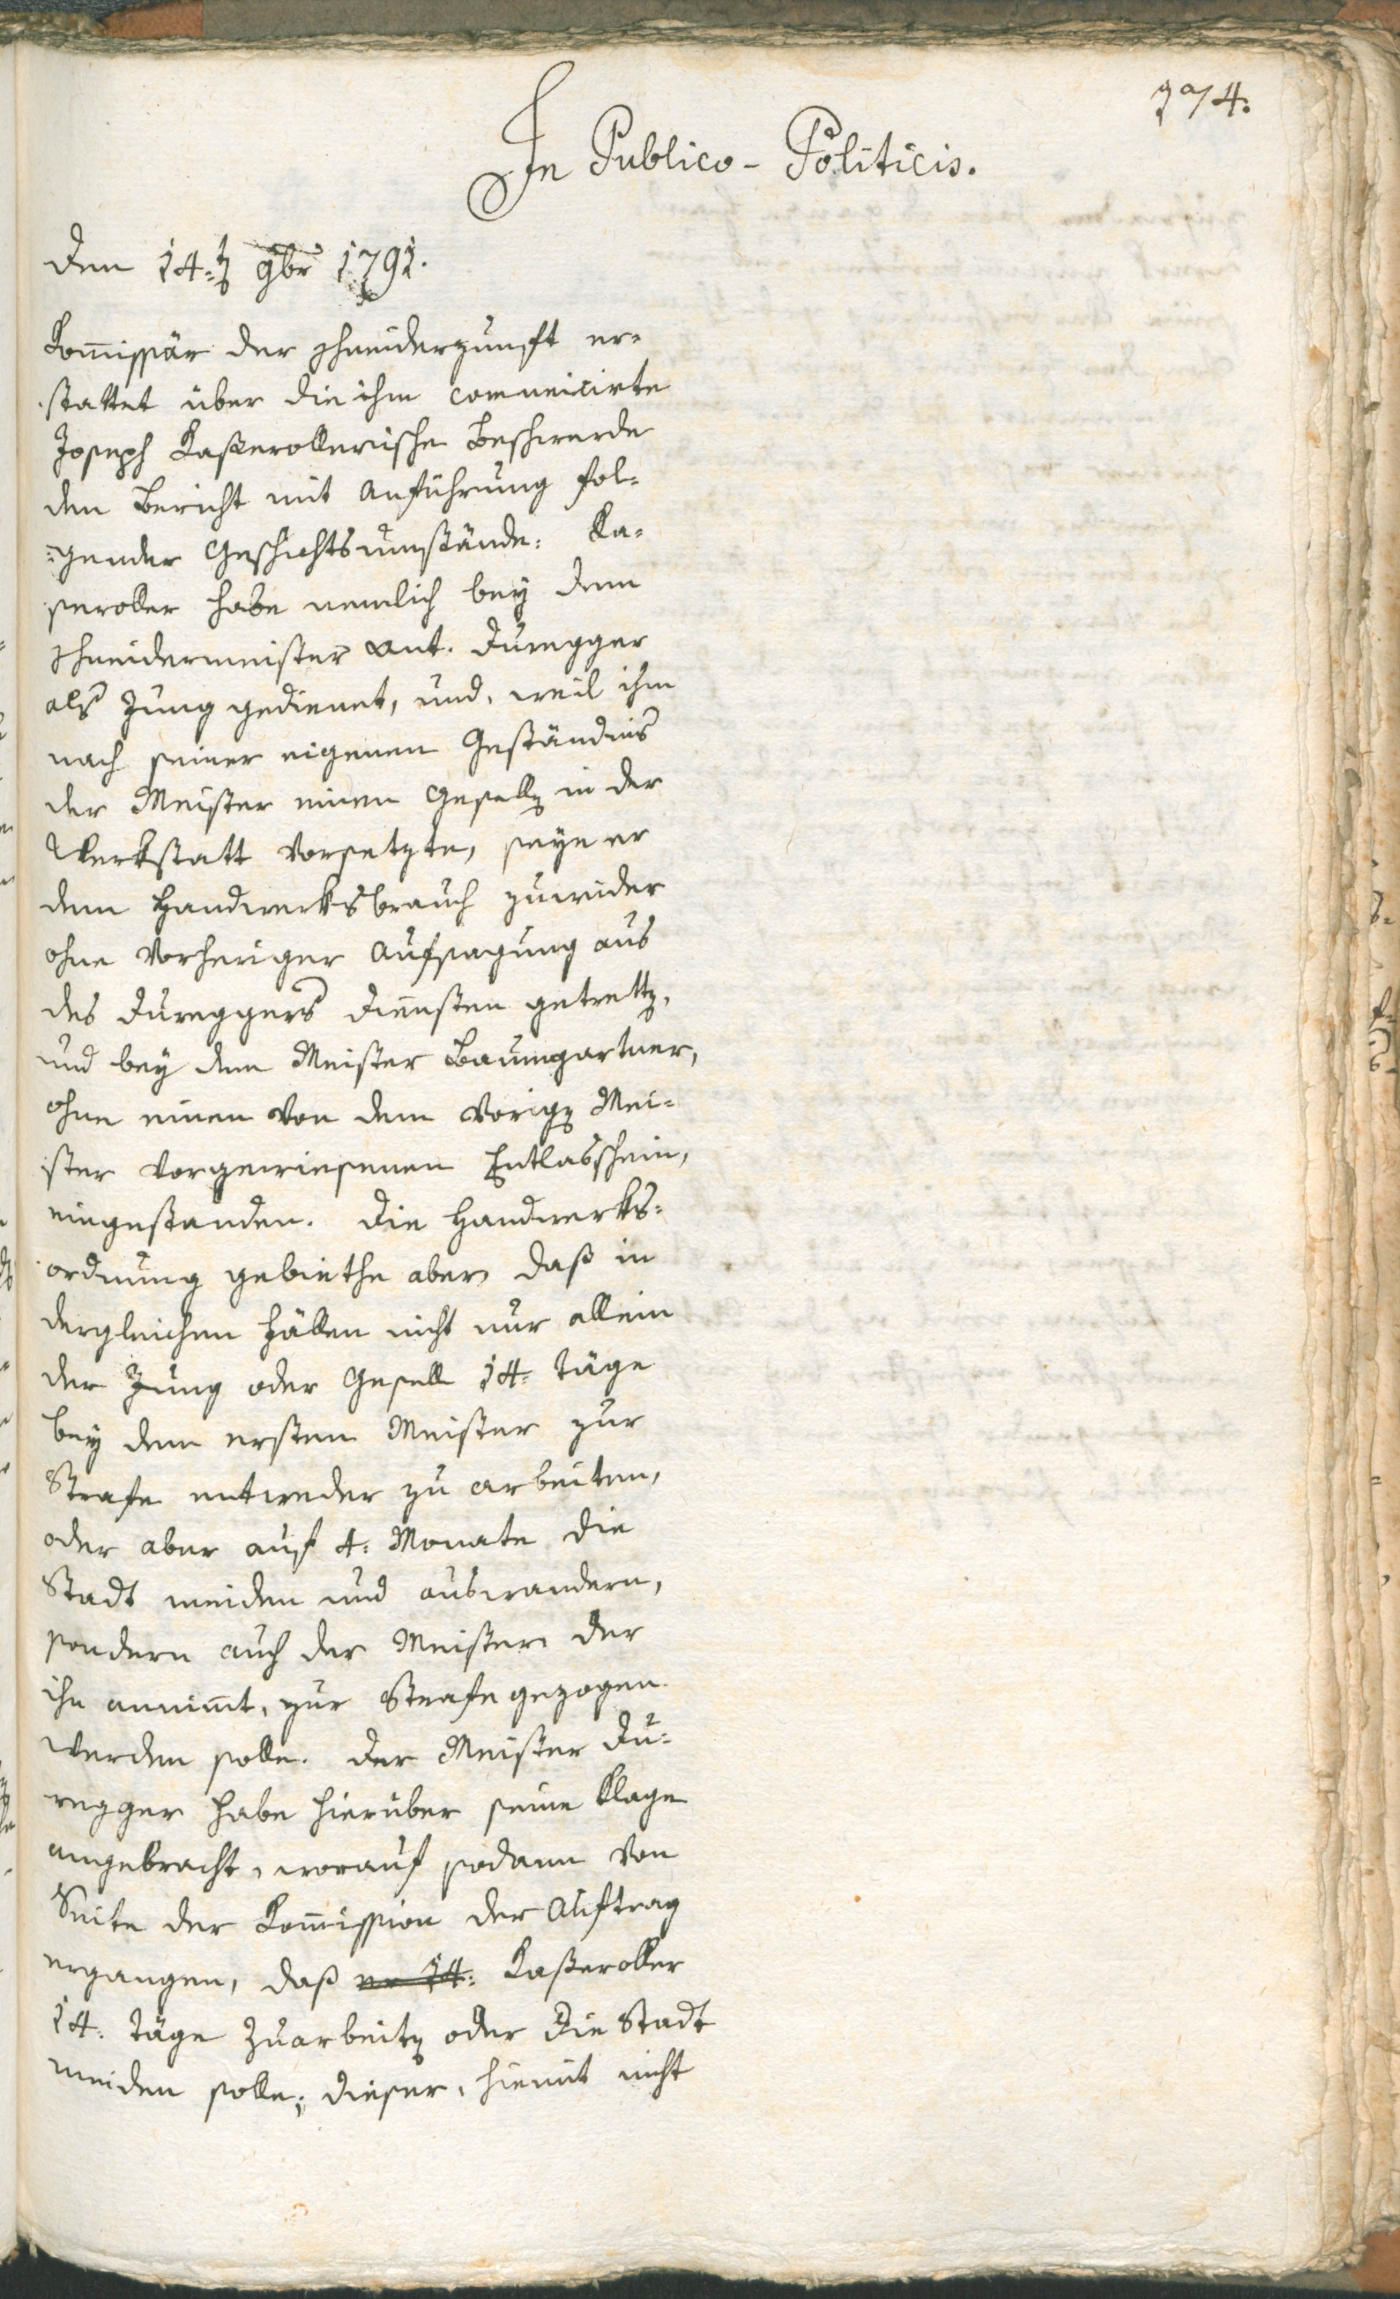 274.
In Publico-Politicis.
Den 14.t 9br 1791.
Kom̄issär der Schneiderzunft er-
stattet über die ihm comunicirte
Joseph Kasserollerische Beschwerde
den Bericht mit Anführung fol-
gender Geschichtsumstände: Ka-
seroller habe nemlich bey dem
Schneidermeister Ant. Duregger
als Jung gedienet, und, weil ihm
nach seiner eigenen Geständnis
der Meister einen Gesellen in der
Werkstatt vorsetzte, seye er
dem Handwerksbrauch zuwider
ohne vorheriger Aufsagung aus
des Dureggers Diensten getretten,
und bey dem Meister Baumgartner,
ohne einen von dem vorigen Mei-
ster vorgewiesenen Entlasschein,
eingestanden. Die Handwerks-
ordnung gebiethe aber, daß in
dergleichen Fällen nicht nur allein
der Jung oder Gesell 14. Täge
bey dem ersten Meister zur
Strafe entweder zu arbeiten,
oder aber auf 4. Monate die
Stadt meiden und auswandern,
sondern auch der Meister, der
ihn annim̄t, zur Strafe gezogen
werden solle. Der Meister Du-
regger habe hierüber seine Klage
angebracht, worauf sodann von
Seite der Kom̄ission der Auftrag
ergangen, daß er 14. Kasseroller
14. Täge zuarbeiten oder die Stadt
meiden solle; dieser, hiemit nicht